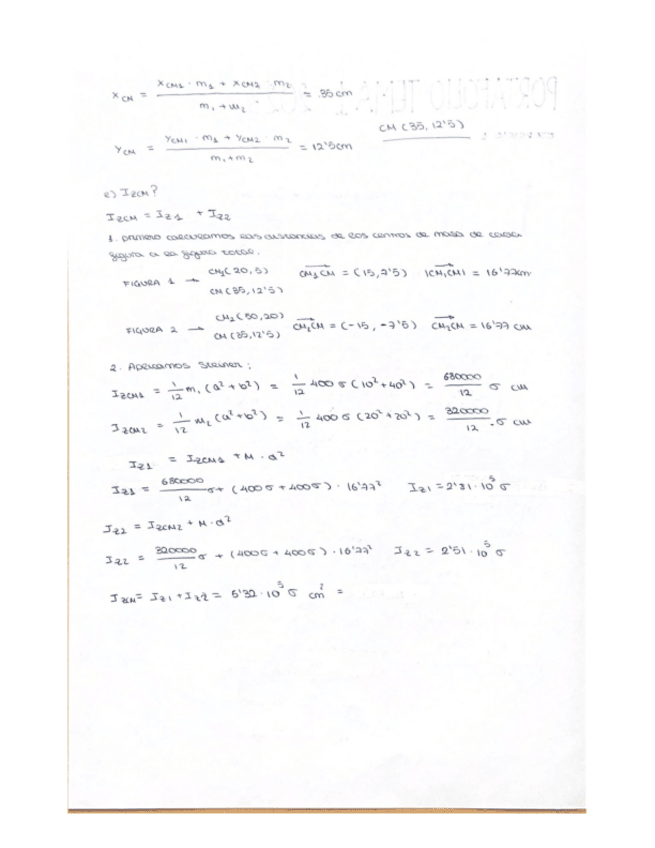 X CM = (X CM1 · m1 + X CM2 · m2) / (m1 + m2) = 35cm
Y CM = (Y CM1 · m1 + Y CM2 · m2) / (m1 + m2) = 12'5cm
CM (35, 12'5)
e) I ZCM?
I ZCM = I Z1 + I Z2
1. primero calculamos las distancias de los centros de masa de cada
figura a la figura total.
FIGURA 1 → CM1 (20, 5) CM1CM = (15, 7'5) |CM1CM| = 16'77cm
CM (35, 12'5)
FIGURA 2 → CM2 (50, 20) CM2CM = (-15, -7'5) CM2CM = 16'77 cm
CM (35, 12'5)
2. Aplicamos Steiner:
I ZCM1 = 1/12 m1 (a² + b²) = 1/12 400 σ (10² + 40²) = 680000/12 σ cm
I ZCM2 = 1/12 m2 (a² + b²) = 1/12 400 σ (20² + 20²) = 320000/12 · σ cm
I Z1 = I ZCM1 + M · d²
I Z1 = 680000/12 σ + (400 σ + 400 σ) · 16'77² I Z1 = 2'81 · 10⁵ σ
I Z2 = I ZCM2 + M · d²
I Z2 = 320000/12 σ + (400 σ + 400 σ) · 16'77² I Z2 = 2'51 · 10⁵ σ
I ZCM = I Z1 + I Z2 = 5'32 · 10⁵ σ cm² =